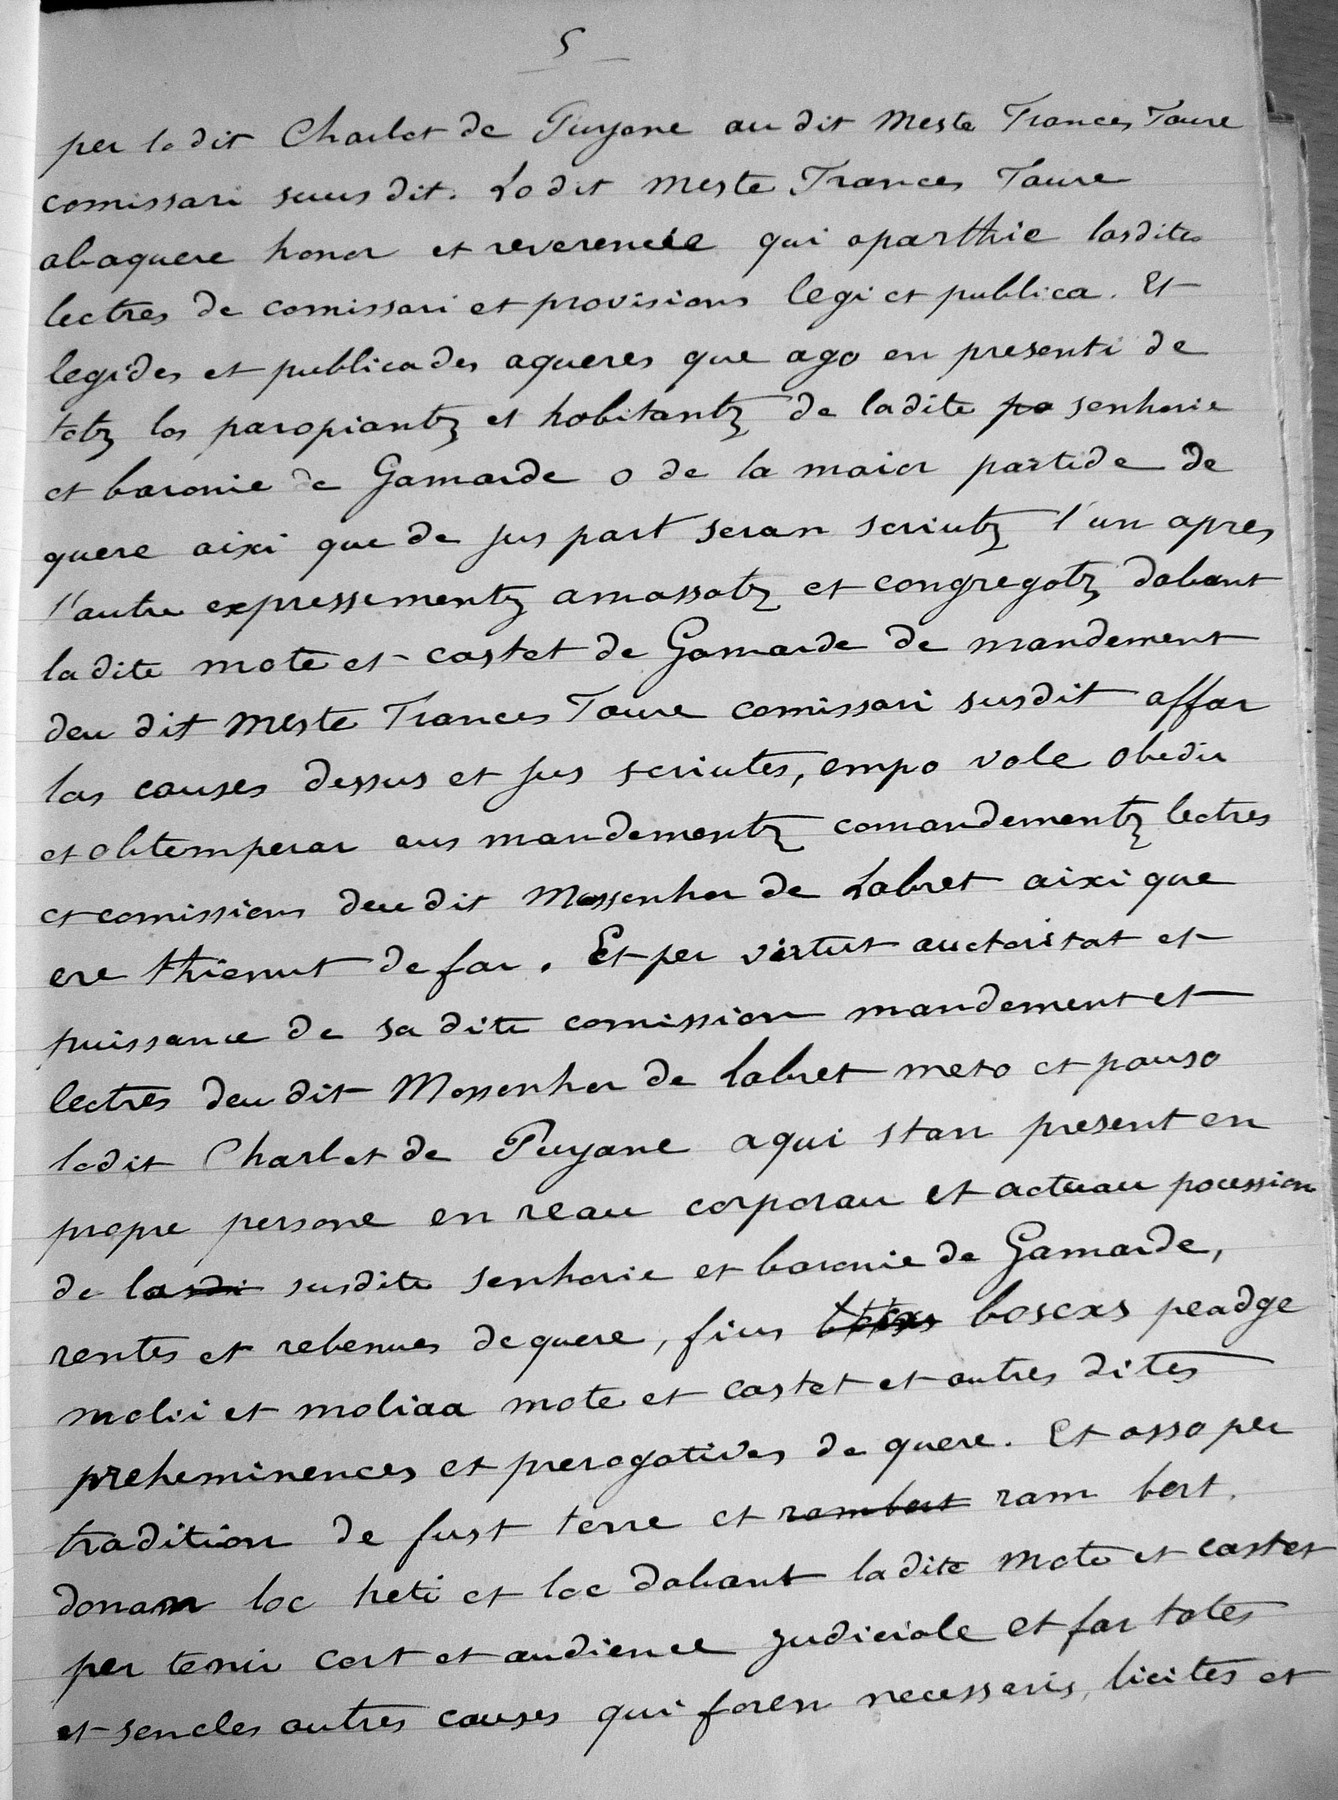 5
per lo dit Charlot de Puyane au dit Meste Frances Faure
comissari suus dit. Lo dit Meste Frances Faure
abaquere honor et reverencie qui aparthie lasdites
lectres de comissari et provisions legi et publica. Et
legides et publicades aqueres que ago en presenti de
totz los paropiantz et habitantz de ladite pa senhorie
et baronie de Gamarde o de la maior partide de
quere aixi que de jus part seran scriutz l'un apres
l'autre expressementz amassatz et congregatz dabant
la dite mote et castet de Gamarde de mandement
deu dit Meste Frances Faure comissari susdit affar
las causes dessus et jus scriutes, empo vole obedir
et obtemperar aus mandementz comandementz lectres
et comissions deu dit Mossenhor de Labret aixi que
ere thienut de far. Et per virtut auctoritat et
puissance de sa dite comission mandement et
lectres deu dit Mossenhor de Labret meto et pauso
lodit Charlot de Puyane aqui stan present en
propre persone en reau corporau et actuau pocession
de lasdi susdite senhorie et baronie de Gamarde,
rentes et rebenues dequere, fius boscxs peadge
molii et moliaa mote et castet et autres dites
preheminences et prerogatives de quere. Et asso per
tradition de fust terre et rambert ram bert.
donam loc heti et loc dabant ladite Mote et castet
per tenir cort et audience judiciale et far totes
et sencles autres causes qui foren necessaris, licites et